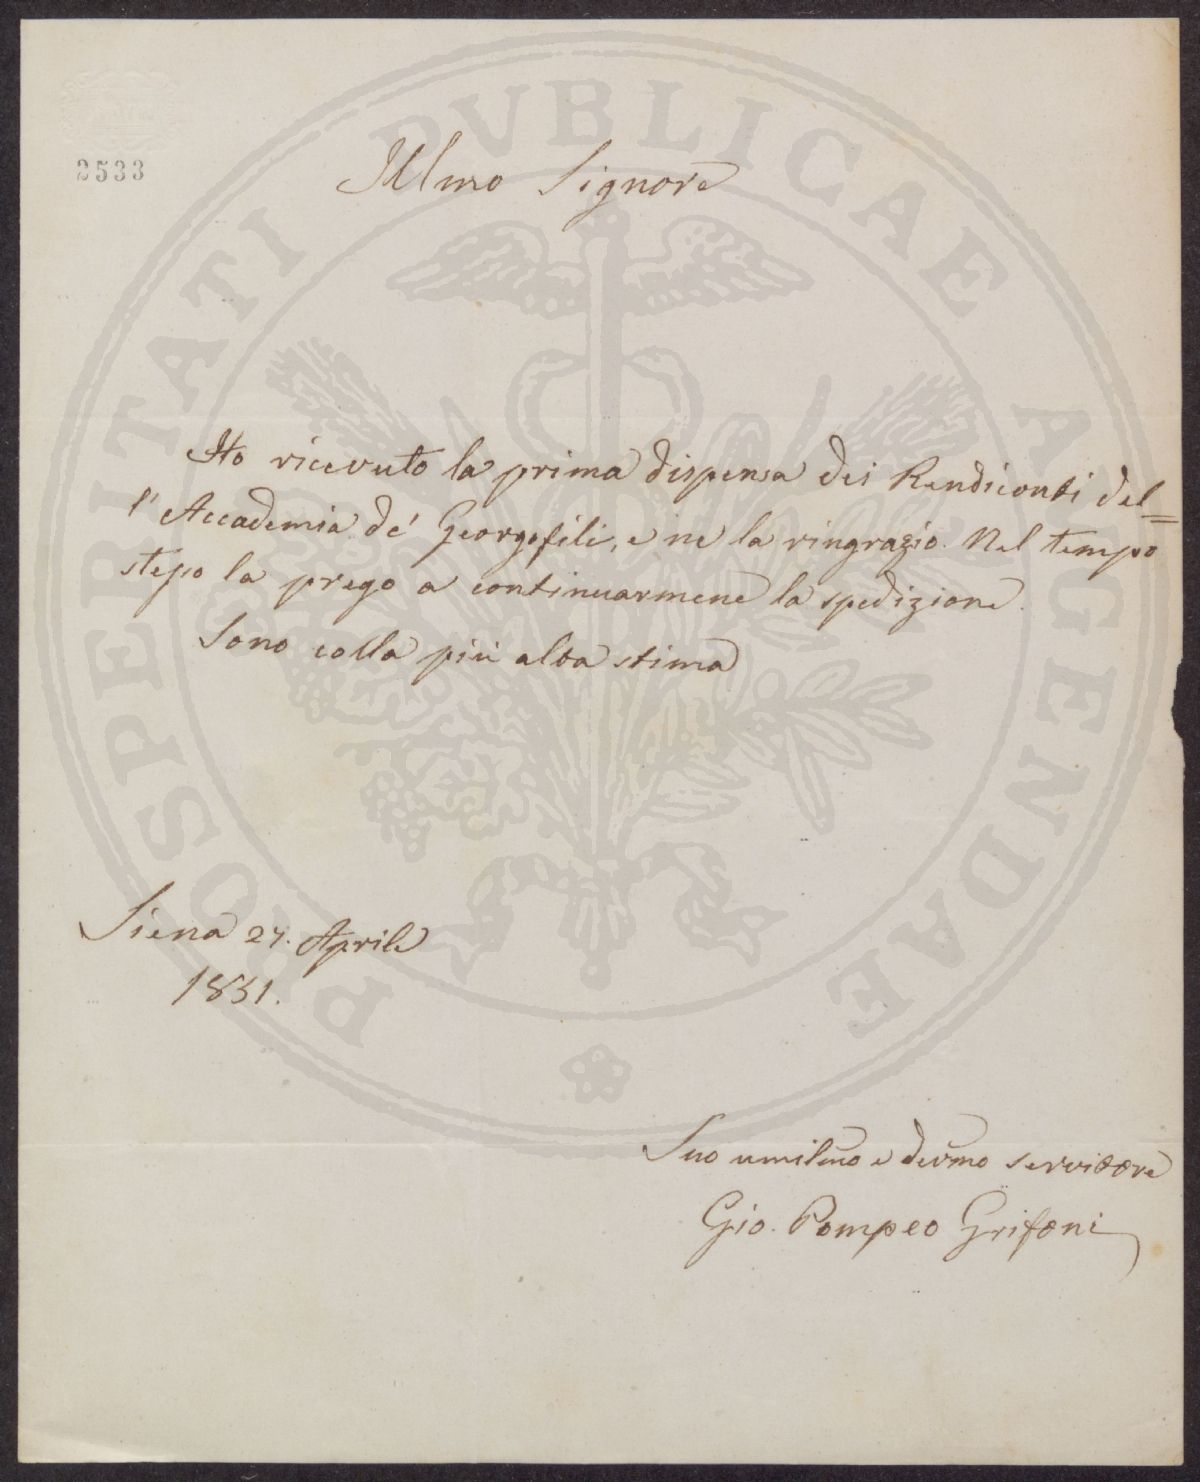 2533
Illmo Signore
Ho ricevuto la prima dispensa dei Rendiconti del=
l'Accademia de' Georgofili, e ne la ringrazio. Nel tempo
stesso la prego a continuarmene la spedizione.
Sono colla più alta stima
Siena 27. Aprile
1851.
Suo umilmo e devmo servitore
Gio. Pompeo Grifoni
PROSPERITATI PVBLICAE AVGENDAE